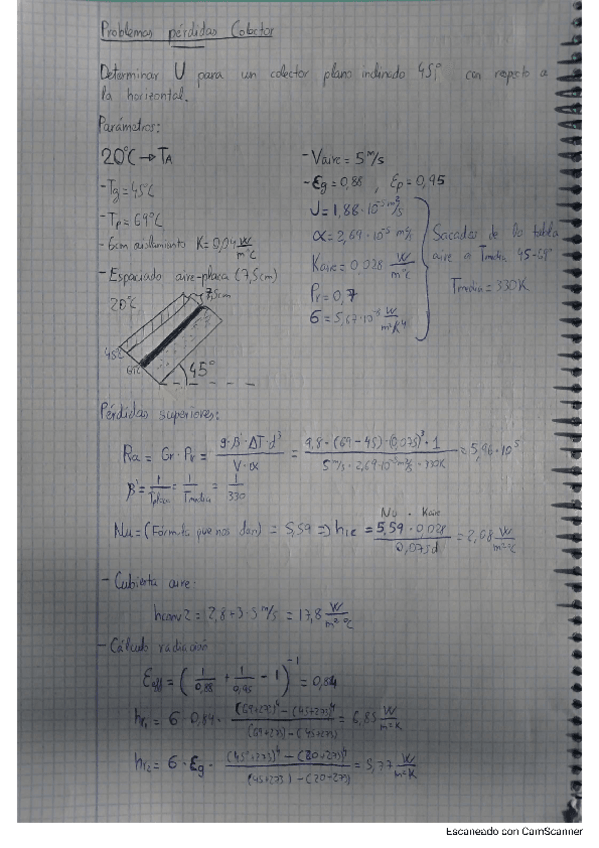 Problemas pérdidas Colector
Determinar U para un colector plano inclinado 45° con respecto a
la horizontal.
Parámetros:
20°C → TA
- Tg = 45°C
- Tp = 69°C
- 6cm aislamiento K = 0,04 W/m°C
- Espaciado aire-placa (7,5cm)
- Vaire = 5 m/s
- Eg = 0,88 , Ep = 0,95
α = 2,69·10⁻⁵ m²/s
Kaire = 0,028 W/m°C
Pr = 0,7
σ = 5,67·10⁻⁸ W/m²K⁴
Sacados de la tabla
aire a Tmedia 45-69°
Tmedia = 330K
20°C
7,5cm
45°
Pérdidas superiores:
Ra = Gr · Pr = g·β'·ΔT·d³ / V·α = 9,8·(69-45)·(0,075)³·1 / 5 m/s · 2,69·10⁻⁵ m²/s · 330K = 5,96·10⁵
= 1/Tmedia = 1/330
Nu = (Fórmula que nos dan) = 5,59 ⇒ h1c = Nu · Kaire
5,59 · 0,028 / 0,075d = 2,08 W/m²°C
- Cubierta aire.
hconv2 = 2,8 + 3·5 m/s = 17,8 W/m²°C
- Cálculo radiación
Eeff = (1/0,88 + 1/0,95 - 1)⁻¹ = 0,84
hr1 = σ · 0,84 · (69+273)⁴ - (45+273)⁴ / (69+273) - (45+273) = 6,85 W/m²K
hr2 = σ · Eg · (45+273)⁴ - (20+273)⁴ / (45+273) - (20+273) = 5,77 W/m²K
Escaneado con CamScanner